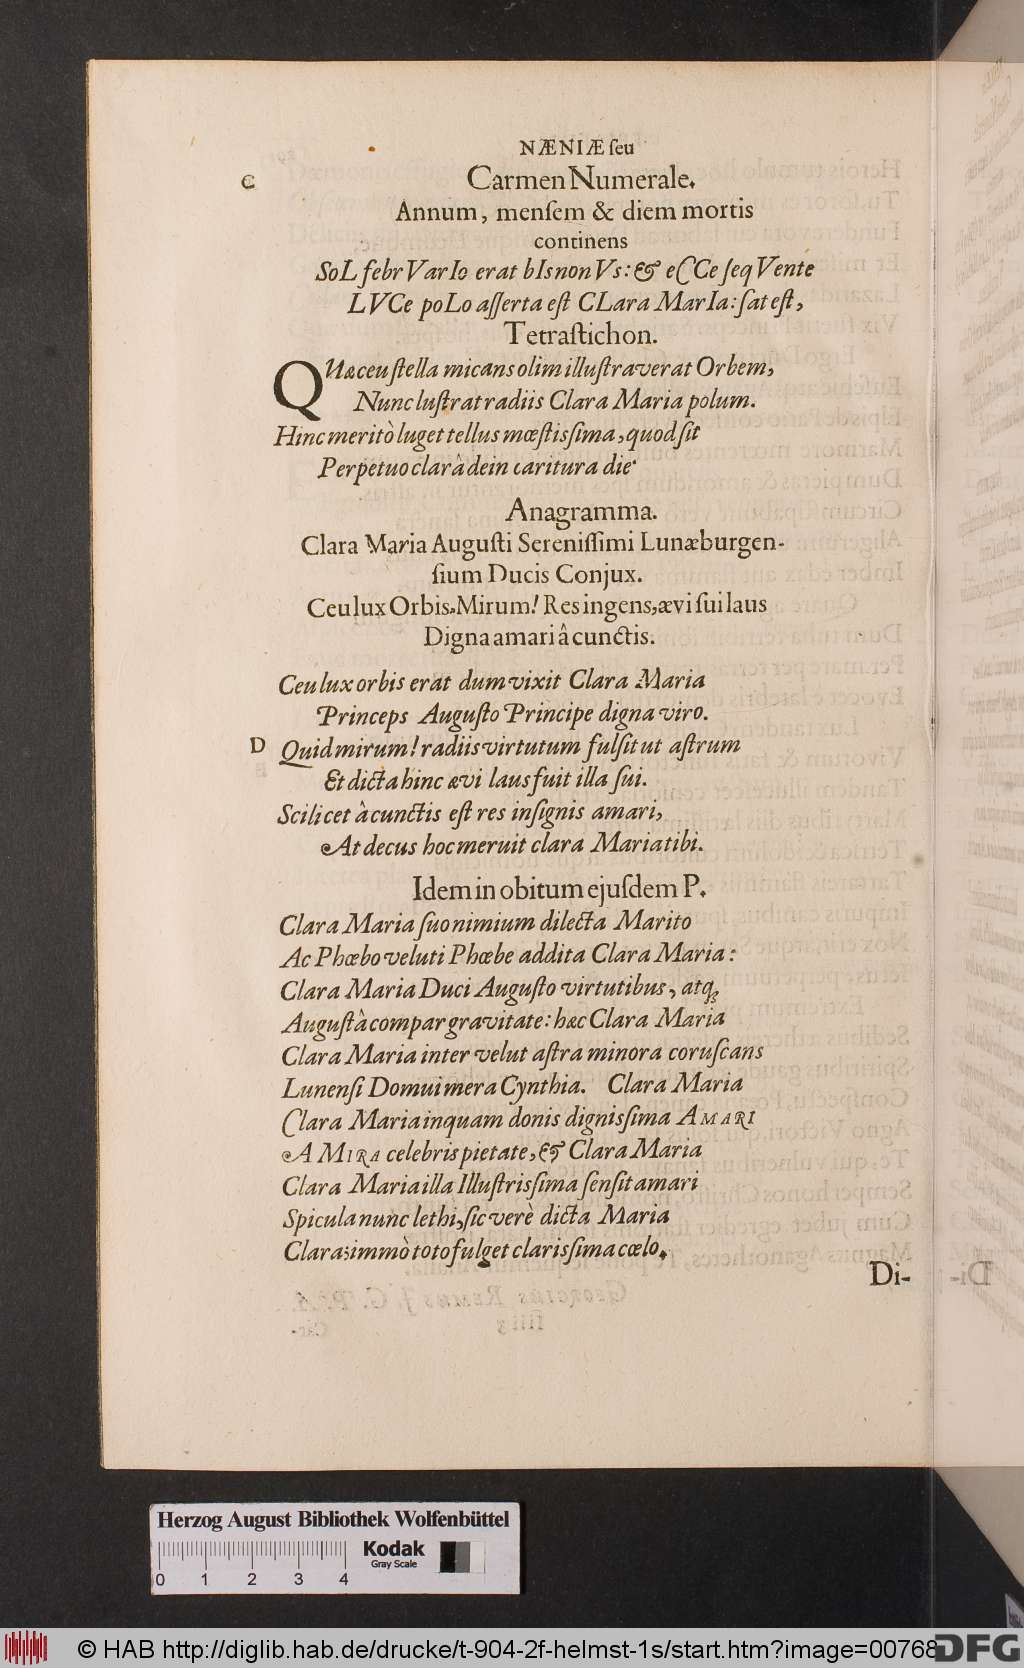 NÆNIÆ ſeu
C
Carmen Numerale.
Annum, menſem & diem mortis
continens
SoL febrVarIo erat bIs nonVs: & eCCe ſeqVente
LVCe poLo aſſerta eſt CLara MarIa: ſat eſt,
Tetraſtichon.
QUæ ceu ſtella micans olim illuſtraverat Orbem,
Nunc luſtrat radiis Clara Maria polum.
Hinc meritò luget tellus mœſtisſima, quod ſit
Perpetuo clarâ dein caritura die
Anagramma.
Clara Maria Auguſti Sereniſſimi Lunæburgen-
ſium Ducis Conjux.
Ceu lux Orbis, Mirum! Res ingens, ævi ſui laus
Digna amari â cunctis.
Ceu lux orbis erat dum vixit Clara Maria
Princeps Auguſto Principe digna viro.
D
Quid mirum! radiis virtutum fulſit ut aſtrum
Et dicta hinc ævi laus fuit illa ſui.
Scilicet à cunctis eſt res inſignis amari,
At decus hoc meruit clara Maria tibi.
Idem in obitum ejuſdem P.
Clara Maria ſuo nimium dilecta Marito
Ac Phœbo veluti Phœbe addita Clara Maria:
Clara Maria Duci Auguſto virtutibus, atq;
Auguſtà compar gravitate: hæc Clara Maria
Clara Maria inter velut aſtra minora coruſcans
Lunenſi Domui mera Cynthia. Clara Maria
Clara Maria inquam donis dignisſima AMARI
A MIRA celebris pietate, & Clara Maria
Clara Maria illa Illuſtrisſima ſenſit amari
Spicula nunc lethi, ſic verè dicta Maria
Clara; immò toto fulget clarisſima cœlo.
Di-
Herzog August Bibliothek Wolfenbüttel
0 1 2 3 4
Kodak
Gray Scale
© HAB http://diglib.hab.de/drucke/t-904-2f-helmst-1s/start.htm?image=00768
DFG